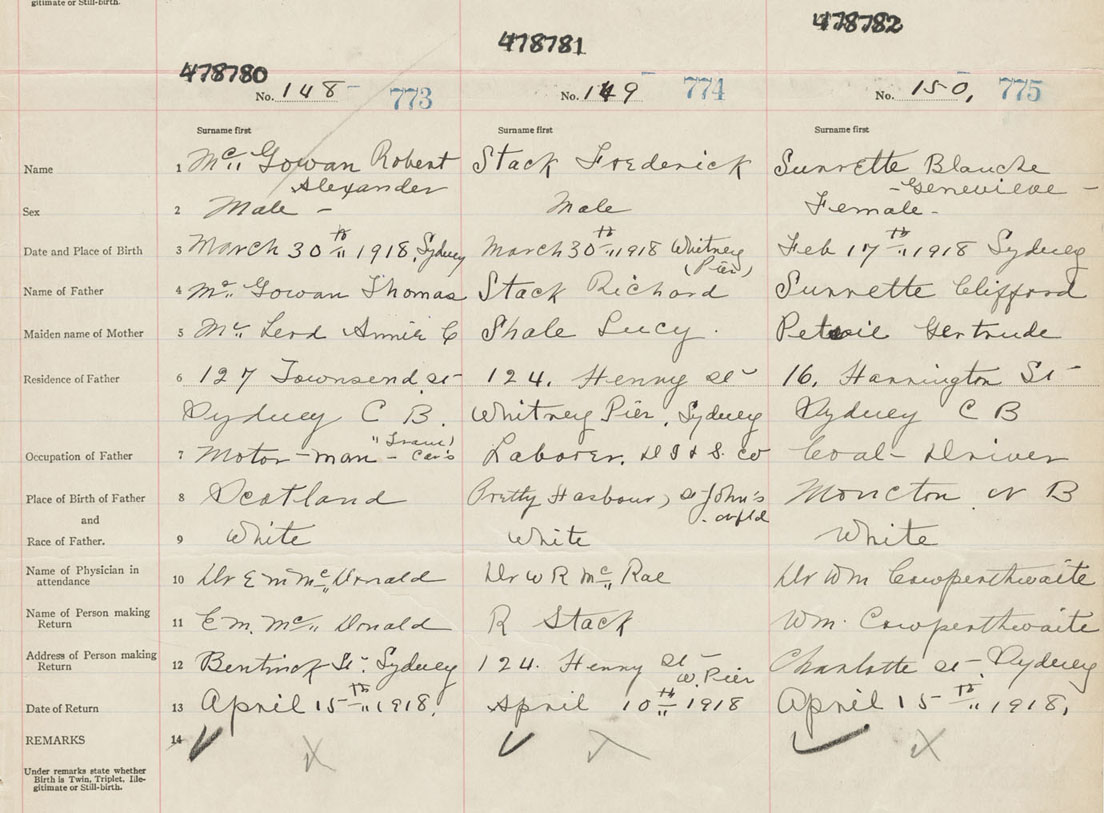 gitimate or Still-birth.
478780 478781 478782
No. 148 773 No. 149 774 No. 150, 775
Surname first Surname first Surname first
Name 1 Mc Gowan Robert Stack Frederick Surrette Blanche
Alexander - Genevieve -
Sex 2 Male - Male Female -
Date and Place of Birth 3 March 30th 1918, Sydney March 30th 1918 Whitney Feb 17th 1918 Sydney
(Pier)
Name of Father 4 Mc Gowan Thomas Stack Richard Surrette Clifford
Maiden name of Mother 5 Mc Annie C Shale Lucy. Gertrude
Residence of Father 6 127 Townsend st 124. Henry st 16. Harrington St
Sydney C B. Whitney Pier, Sydney Sydney C B
"Tram"
Occupation of Father 7 Motor-man - Car's Laborer. D I & S. Co Coal - Driver
Place of Birth of Father 8 Scotland Pretty Harbour, St John's Moncton N B
and Nfld
Race of Father. 9 White White White
Name of Physician in
attendance 10 Dr E M Mc Donald Dr W R Mc Rae Dr Wm Cowperthwaite
Name of Person making
Return 11 E M. Mc Donald R Stack Wm. Cowperthwaite
Address of Person making
Return 12 Bentinck St. Sydney 124. Henry St Charlotte st - Sydney
W. Pier
Date of Return 13 April 15th 1918. April 10th 1918 April 15th 1918,
REMARKS 14
Under remarks state whether
Birth is Twin, Triplet, Ille-
gitimate or Still-birth.